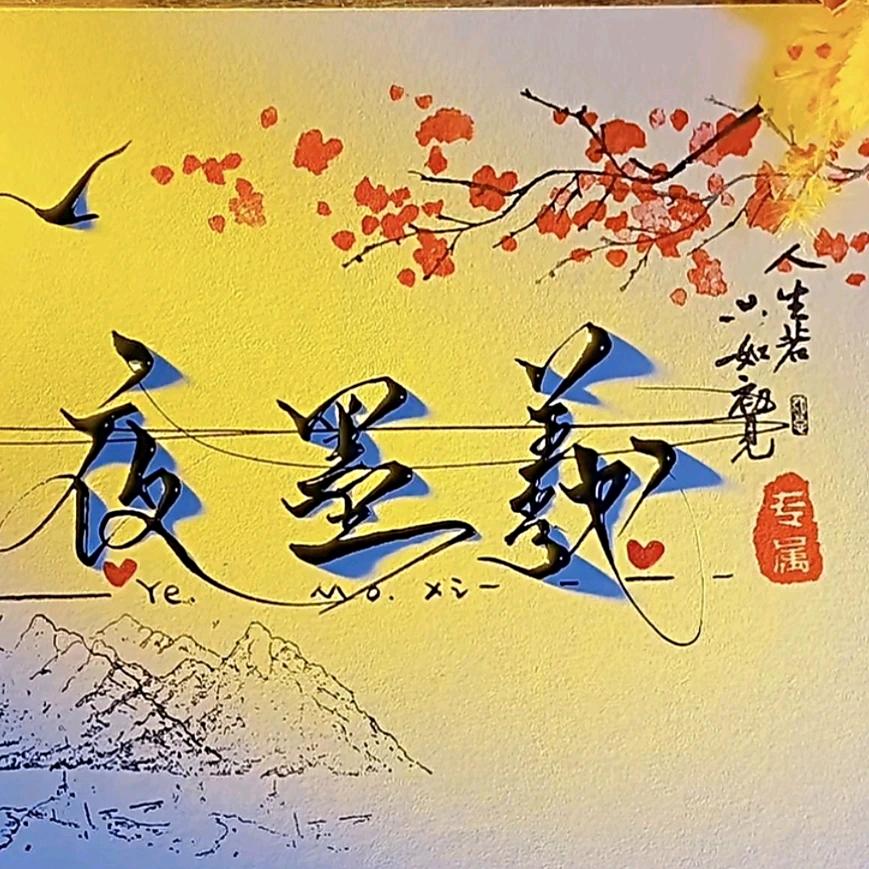 夜墨羲
Ye. Mo. xi
人生若
只如初見
专属